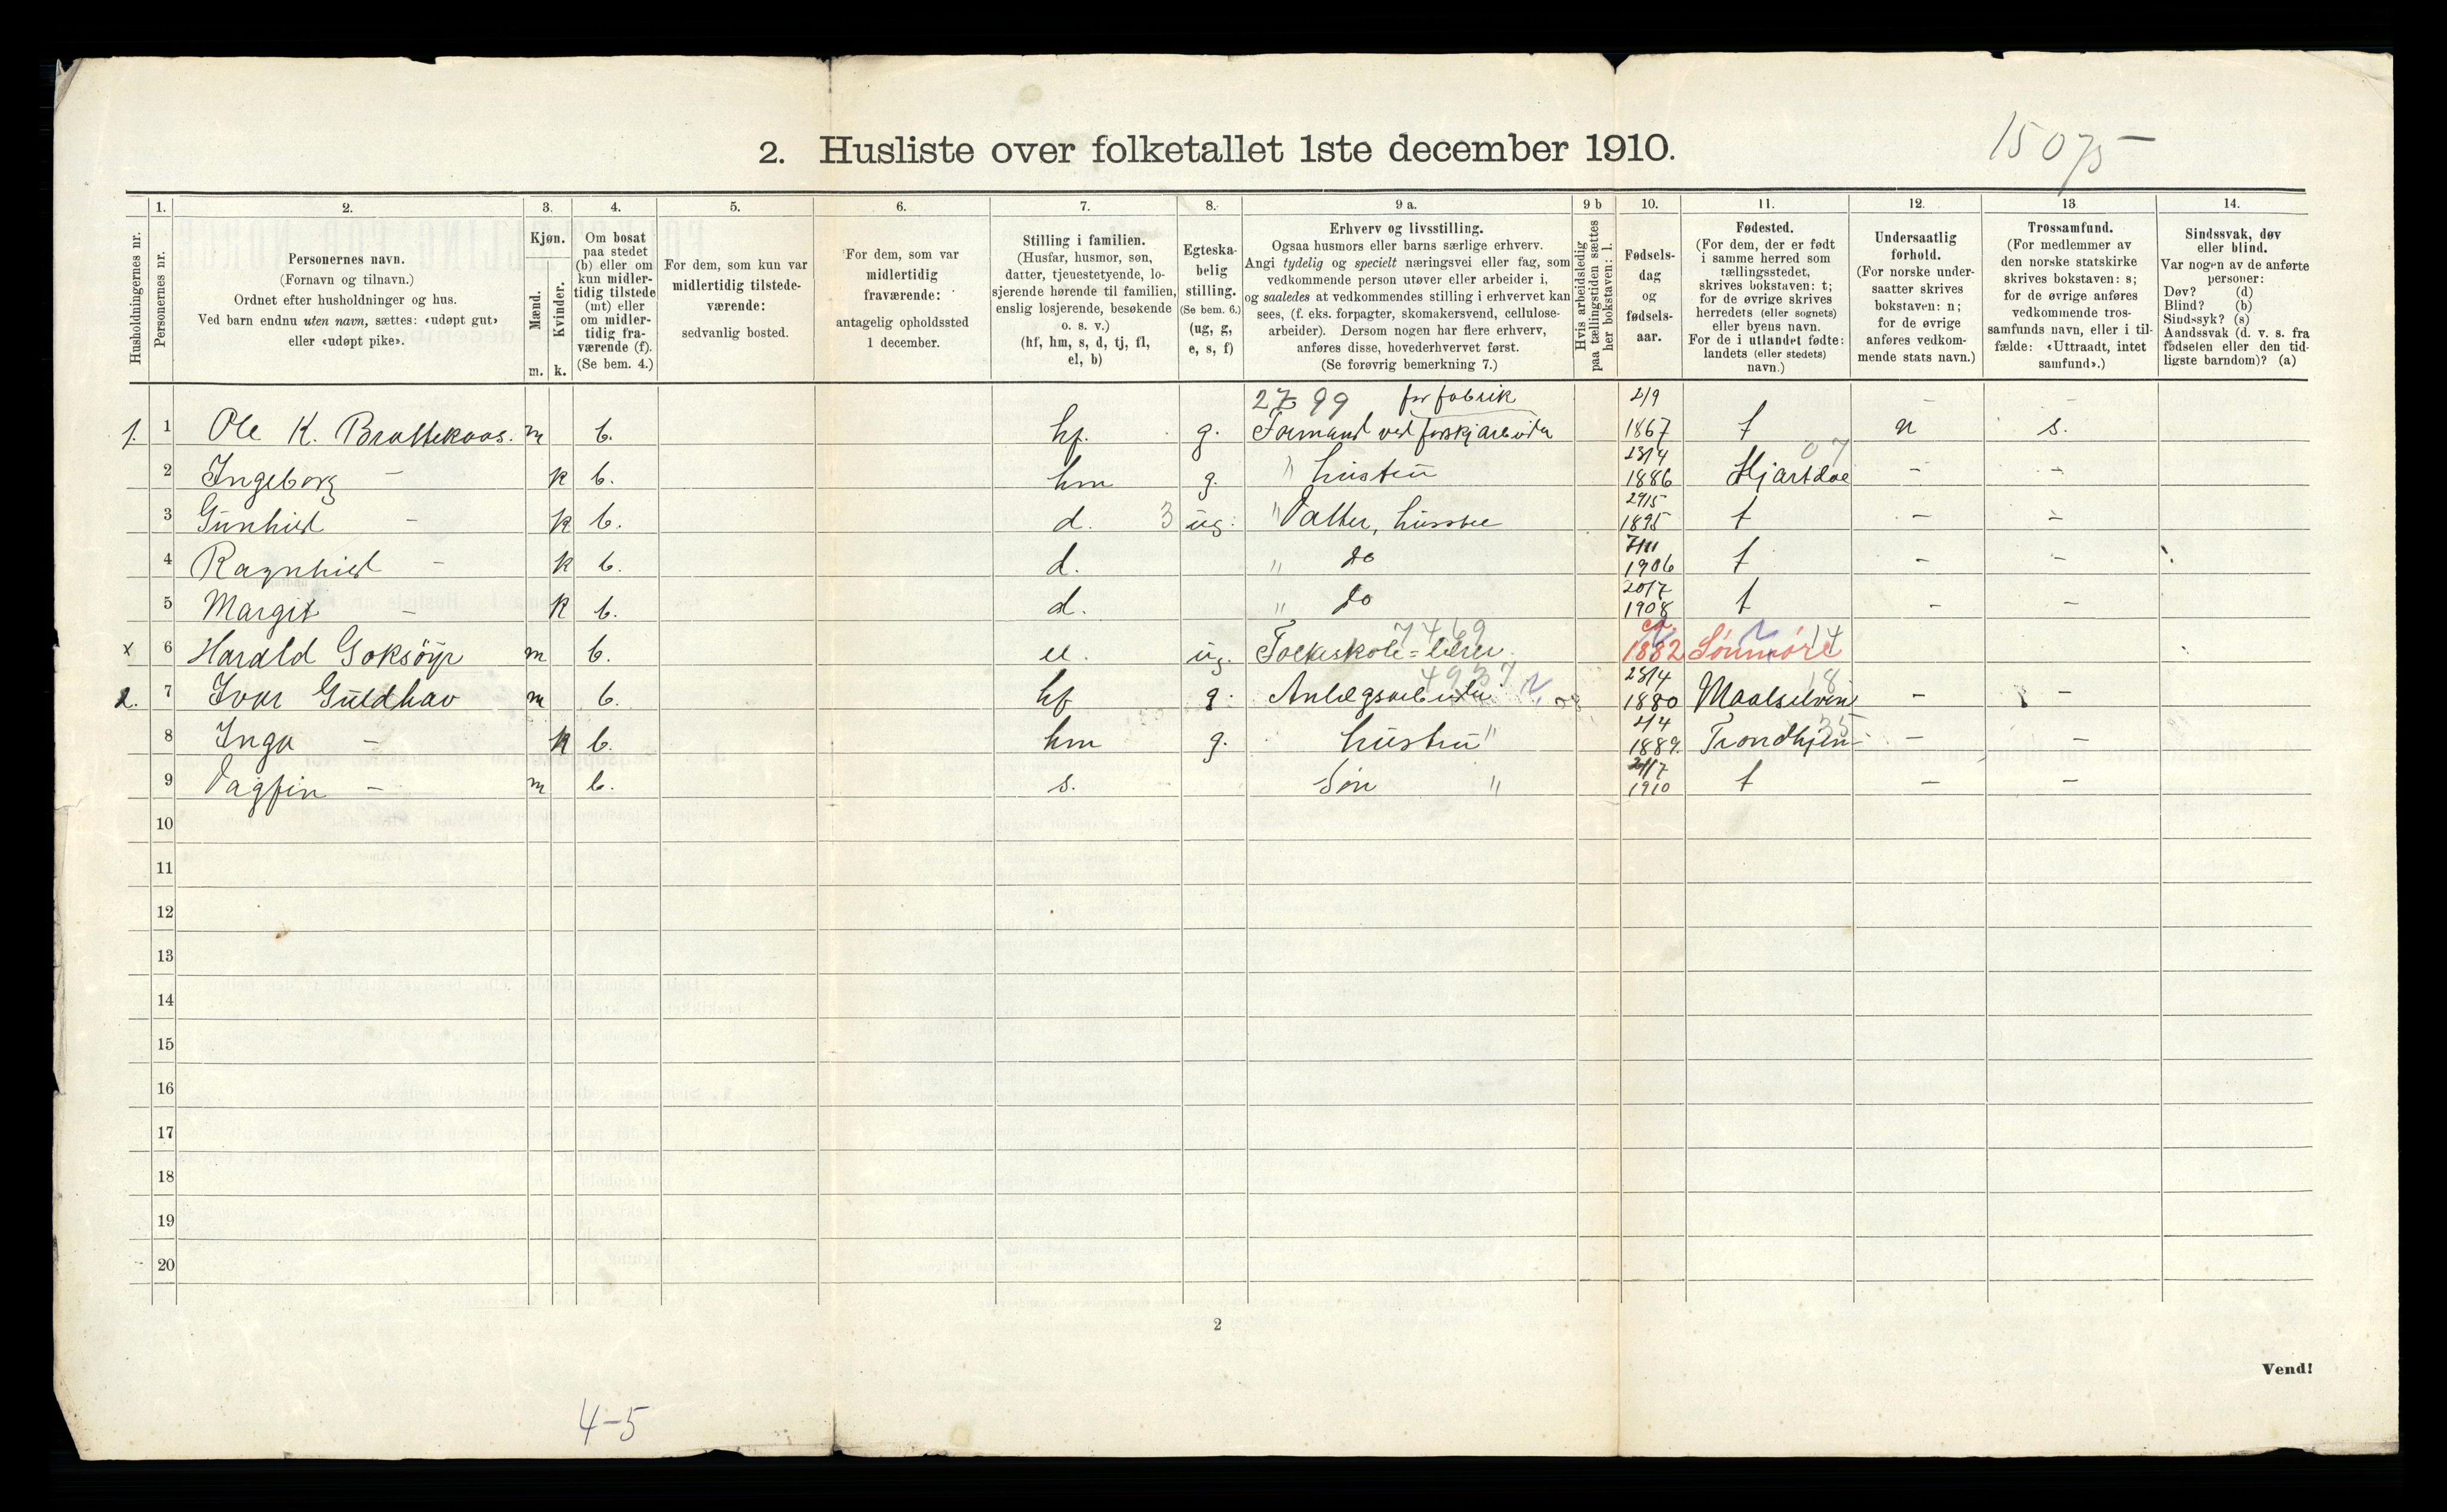 2. Husliste over folketallet 1ste december 1910.
15075
1. 2. 3. 4. 5. 6. 7. 8. 9 a. 9 b 10. 11. 12. 13 14.
Husholdningernes nr.
Personernes nr.
Personernes navn.
(Fornavn og tilnavn.)
Ordnet efter husholdninger og hus.
Ved barn endnu uten navn, sættes: «udøpt gut»
eller «udøpt pike».
Kjøn.
Mænd.
Kvinder.
m. k.
Om bosat
paa stedet
(b) eller om
kun midler-
tidig tilstede
(mt) eller
om midler-
tidig fra-
værende (f).
(Se bem. 4.)
For dem, som kun var
midlertidig tilstede-
værende:
sedvanlig bosted.
For dem, som var
midlertidig
fraværende:
antagelig opholdssted
1 december.
Stilling i familien.
(Husfar, husmor, søn,
datter, tjenestetyende, lo-
sjerende hørende til familien,
enslig losjerende, besøkende
o. s. v.)
(hf, hm, s, d, tj, fl,
el, b)
Egteska-
belig
stilling.
(Se bem. 6.)
(ug, g,
e, s, f)
Erhverv og livsstilling.
Ogsaa husmors eller barns særlige erhverv.
Angi tydelig og specielt næringsvei eller fag, som
vedkommende person utøver eller arbeider i,
og saaledes at vedkommendes stilling i erhvervet kan
sees, (f. eks. forpagter, skomakersvend, cellulose-
arbeider). Dersom nogen har flere erhverv,
anføres disse, hovederhvervet først.
(Se forøvrig bemerkning 7.)
Hvis arbeidsledig
paa tællingstiden sættes
her bokstaven: l.
Fødsels-
dag
og
fødsels-
aar.
Fødested.
(For dem, der er født
i samme herred som
tællingsstedet,
skrives bokstaven: t;
for de øvrige skrives
herredets (eller sognets)
eller byens navn.
For de i utlandet fødte:
landets (eller stedets)
navn.)
Undersaatlig
forhold.
(For norske under-
saatter skrives
bokstaven: n;
for de øvrige
anføres vedkom-
mende stats navn.)
Trossamfund.
(For medlemmer av
den norske statskirke
skrives bokstaven: s;
for de øvrige anføres
vedkommende tros-
samfunds navn, eller i til-
fælde: «Uttraadt, intet
samfund».)
Sindssvak, døv
eller blind.
Var nogen av de anførte
personer:
Døv? (d)
Blind? (b)
Sindssyk? (s)
Aandssvak (d. v. s. fra
fødselen eller den tid-
ligste barndom)? (a)
for fabrik 2/9
1. 1 Ole K. Brattekaas. m b. hf. g. Formand ved 1867 t n s.
07
2 Ingeborg - k b. hm g. " hustru 1886 Hjartdal - -
3 Gunhild - k b. d. 3 ug. " Datter, husstel 1895 t - -
4 Ragnhild - k b. d. " do 1906 t - -
20/7
5 Margit - k b. d. " do 1908 t - -
7469 ca. 14
x 6 Harald Goksöyr m b. el. ug. Folkeskole=lærer. 1882 Sönmöre
4937 18
2. 7 Ivar Guldhav m b. hf g. Anlægsarbeider 1880 Maalselven - -
2/4
8 Inga - k b. hm g. hustru " 1889. Trondhjem - -
9 Dagfin - m b. s. Søn " 1910 t - -
10
11
12
13
14
15
16
17
18
19
20
2
Vend!
4-5